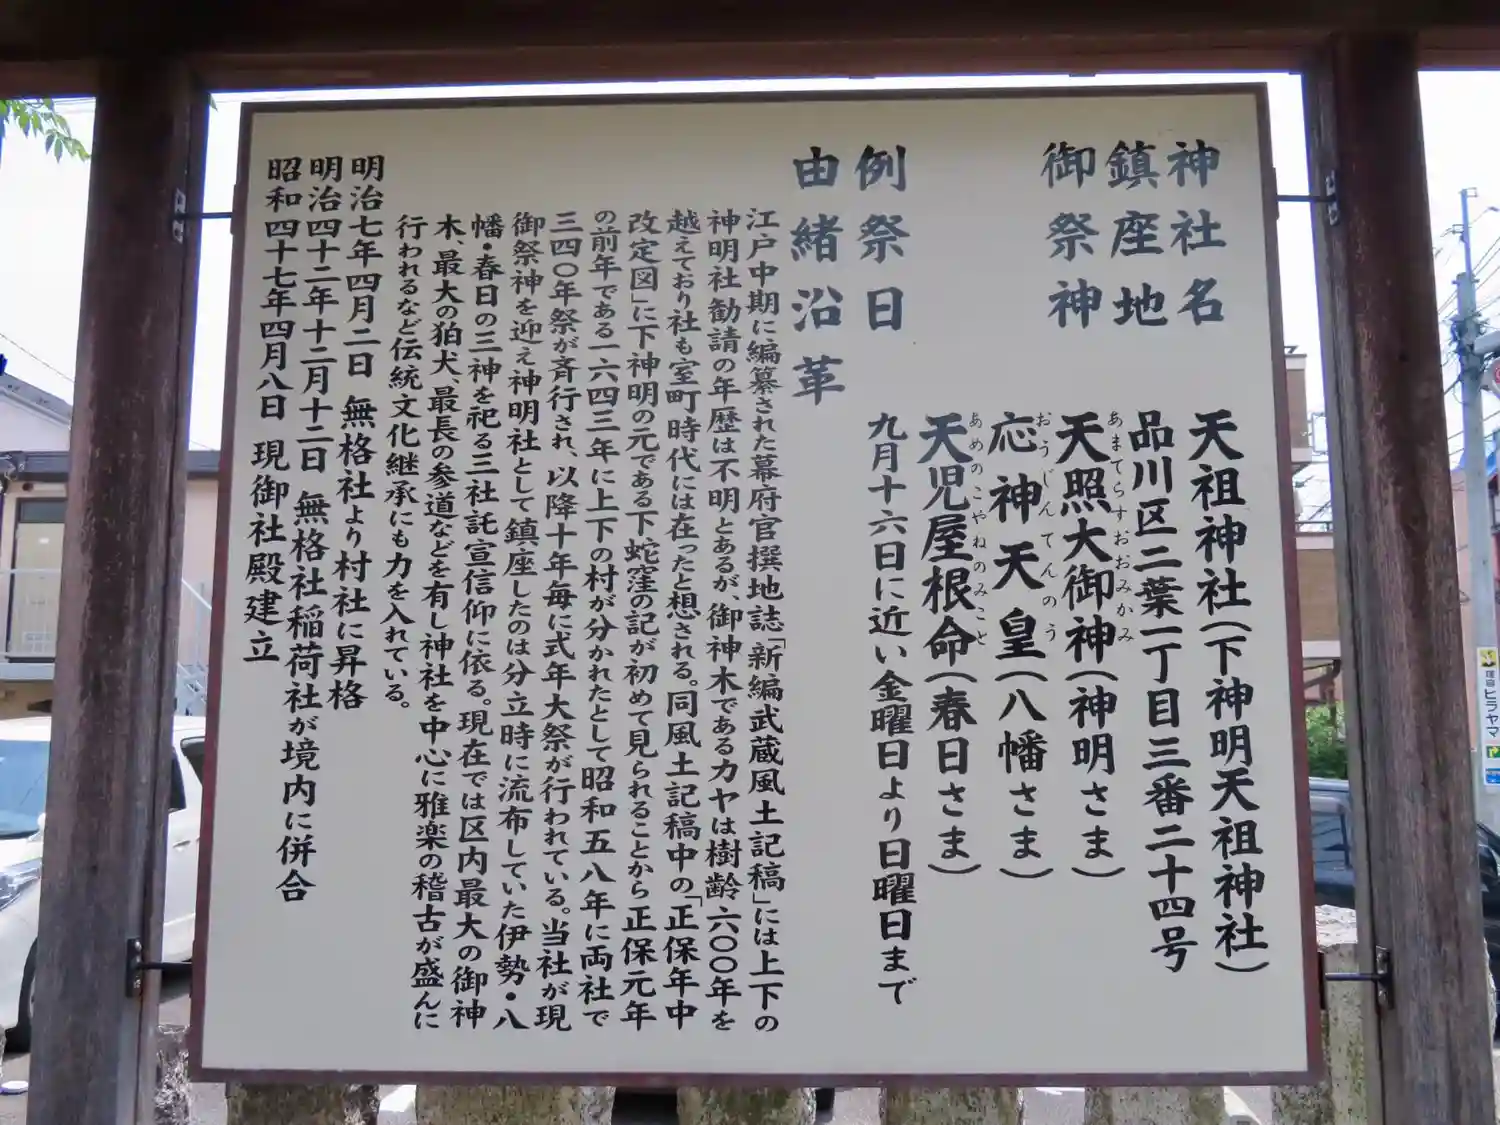 神社名 天祖神社(下神明天祖神社)
鎮座地 品川区二葉一丁目三番二十四号
御祭神 天照大御神(神明さま)
あまてらすおおみかみ
応神天皇(八幡さま)
おうじんてんのう
天児屋根命(春日さま)
あめのこやねのみこと
例祭日 九月十六日に近い金曜日より日曜日まで
由緒沿革
江戸中期に編纂された幕府官撰地誌「新編武蔵風土記稿」には上下の
神明社勧請の年歴は不明とあるが、御神木であるカヤは樹齢六〇〇年を
越えており社も室町時代には在ったと想される。同風土記稿中の「正保年中
改定図」に下神明の元である下蛇窪の記が初めて見られることから正保元年
の前年である一六四三年に上下の村が分かれたとして昭和五八年に両社で
三四〇年祭が斉行され、以降十年毎に式年大祭が行われている。当社が現
御祭神を迎え神明社として鎮座したのは分立時に流布していた伊勢・八
幡・春日の三神を祀る三社託宣信仰に依る。現在では区内最大の御神
木、最大の狛犬、最長の参道などを有し神社を中心に雅楽の稽古が盛んに
行われるなど伝統文化継承にも力を入れている。
明治七年四月二日 無格社より村社に昇格
明治四十二年十二月十二日 無格社稲荷社が境内に併合
昭和四十七年四月八日 現御社殿建立
ヒラヤマ